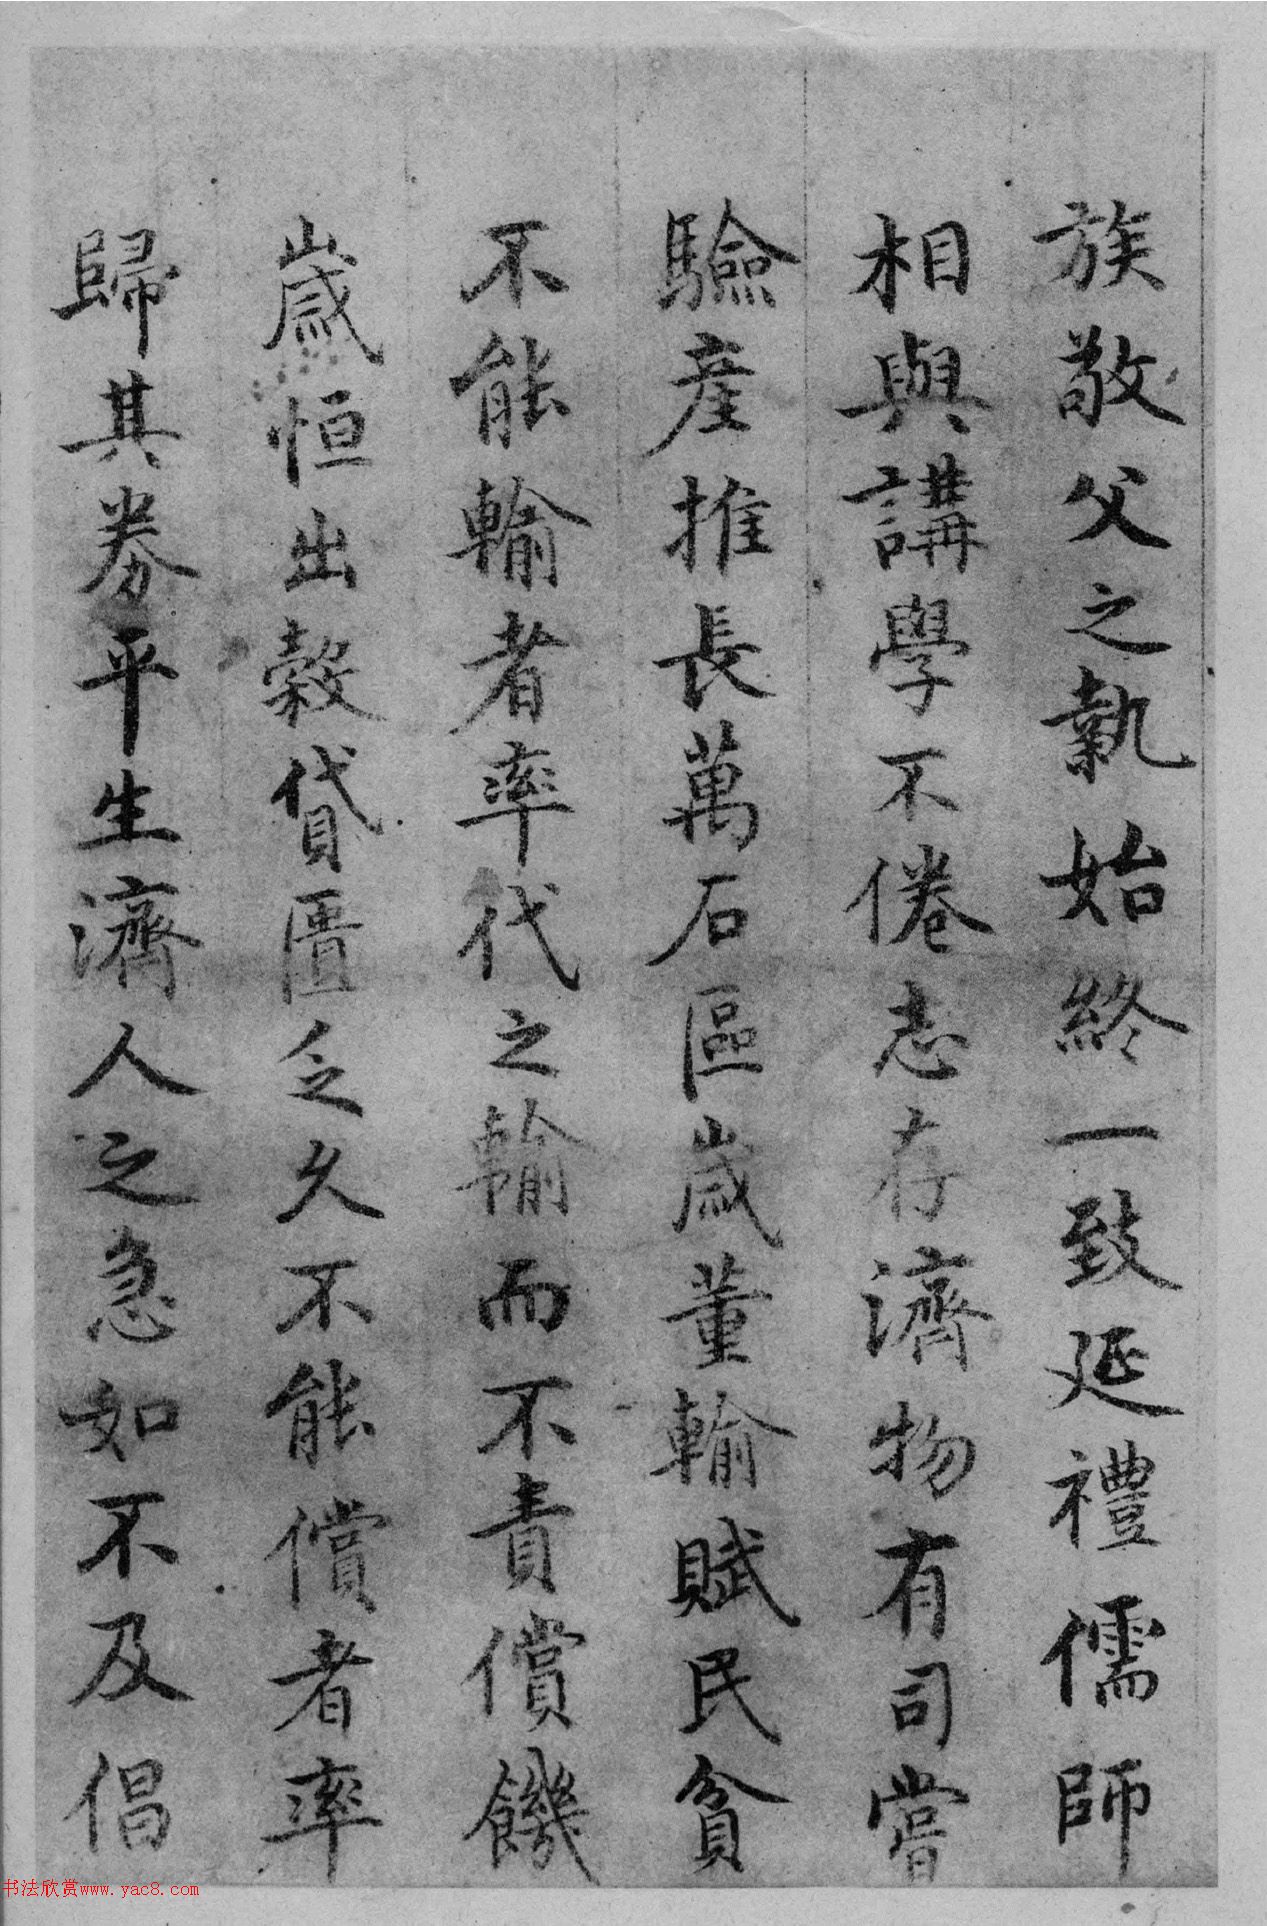 族敬父之執始終一致延禮儒師
相與講學不倦志存濟物有司嘗
驗產推長萬石區歲董輸賦民貧
不能輸者率代之輸而不責償饑
歲恒出穀貸匱乏久不能償者率
歸其券平生濟人之急如不及倡
书法欣赏www.yac8.com